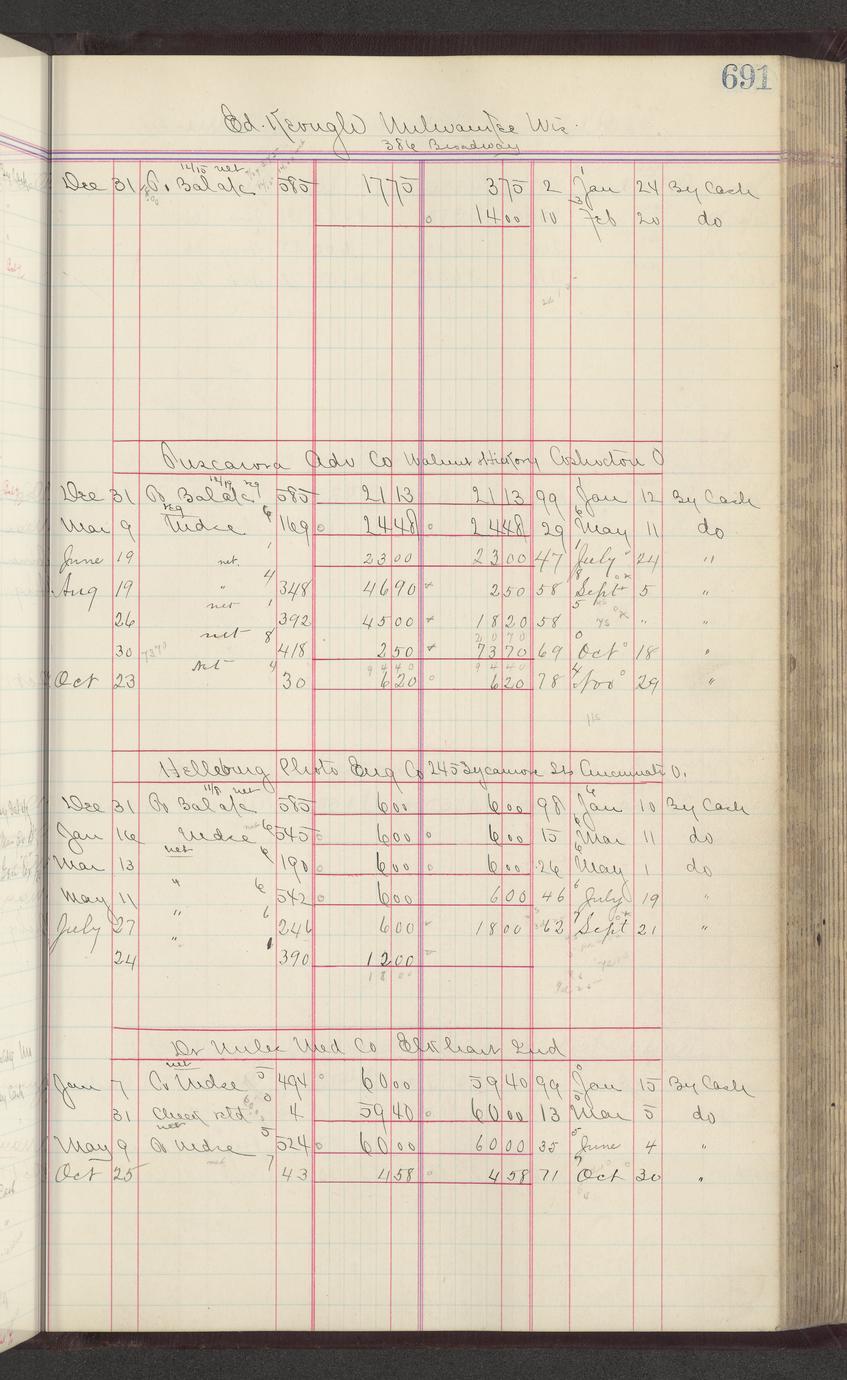 691
Ed. Keough Milwaukee Wis.
386 Broadway
12/15 net
Dec 31 To Balance 585 17 75 3 75 2 Jan 24 By Cash
14 00 10 Feb 20 do
Tuscarora Adv Co Walnut & Hickory Coshocton O
Dec 31 To Balance 585 21 13 21 13 99 Jan 12 By Cash
Mar 9 Mdse 169 24 48 24 48 29 May 11 do
June 19 net. 23 00 23 00 47 July 24 "
Aug 19 " 4 348 46 90 2 50 58 Sept 5 "
26 net 1 392 45 00 18 20 58 " "
20 70
30 7370 net 8 418 2 50 73 70 69 Oct 18 "
94 40 94 40
Oct 23 Net 4 30 6 20 6 20 78 Nov 29 "
Helleburg Photo Eng Co 245 Sycamore St Cincinnati O.
Dec 31 To Balance net 585 6 00 6 00 98 Jan 10 By Cash
Jan 16 Mdse 6 545 6 00 6 00 15 Mar 11 do
Mar 13 net 6 190 6 00 6 00 26 May 1 do
May 11 " 6 542 6 00 6 00 46 July 19 "
July 27 " 6 246 6 00 18 00 62 Sept 21 "
24 " 1 390 12 00
18 00
Dr Miles Med Co Elkhart Ind
Jan 7 To Mdse net 5 494 60 00 59 40 99 Jan 15 By Cash
31 Check retd 4 59 40 60 00 13 Mar 5 do
May 9 To Mdse net 5 524 60 00 60 00 35 June 4 "
Oct 25 7 43 4 58 4 58 71 Oct 30 "